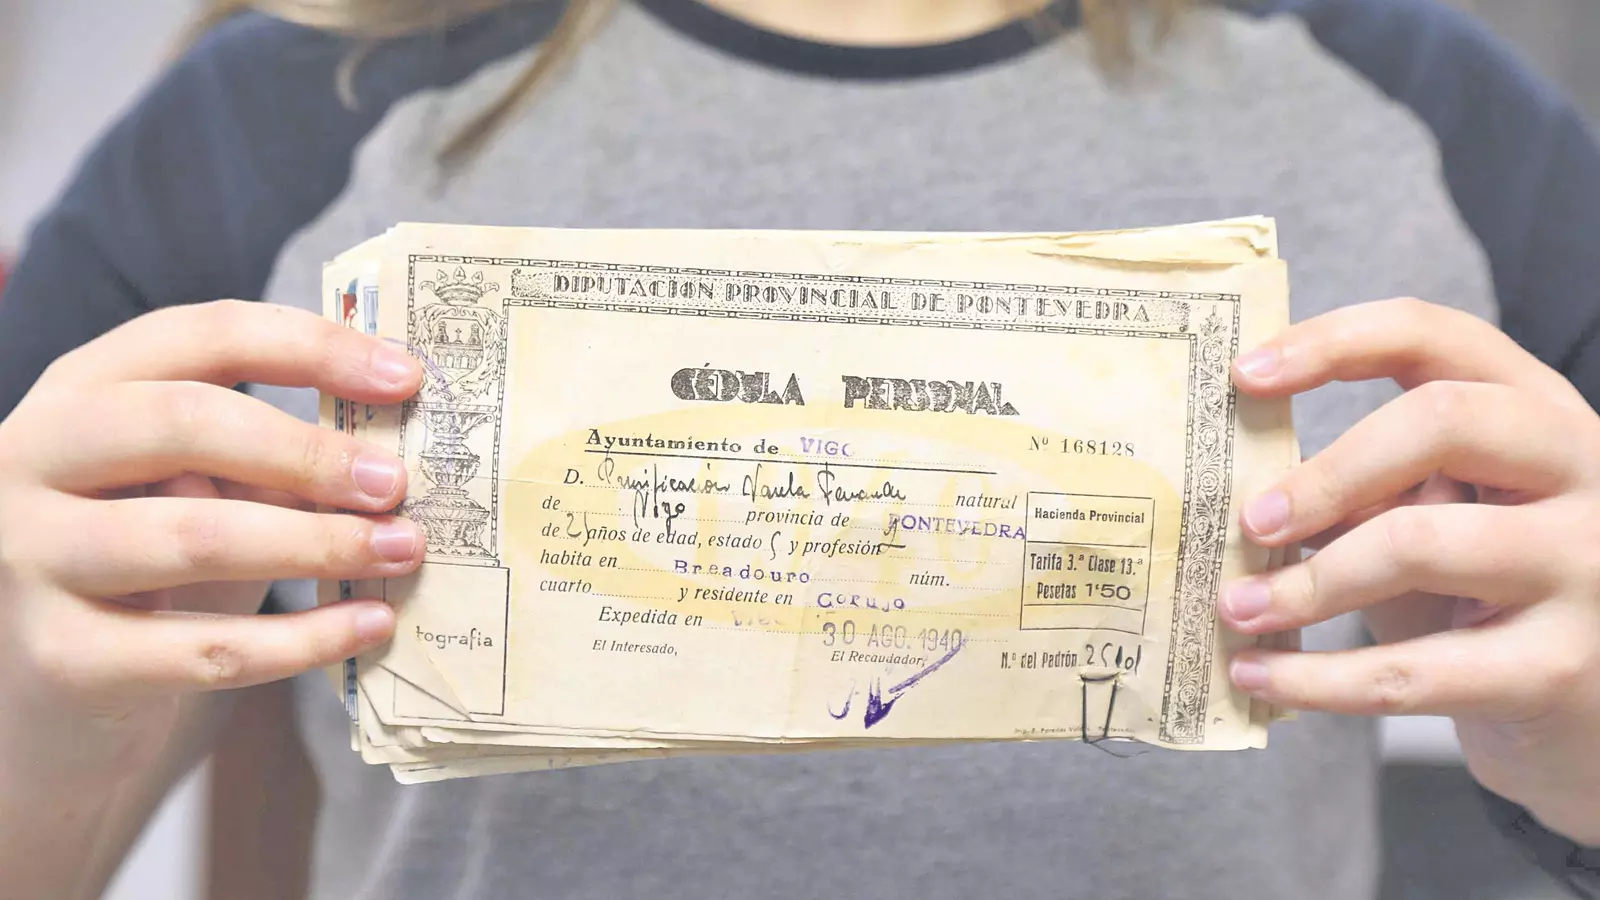 DIPUTACIÓN PROVINCIAL DE PONTEVEDRA
CÉDULA PERSONAL
Ayuntamiento de VIGO
Nº 168128
D. Purificación Varela Fernandez natural
de Vigo provincia de PONTEVEDRA
de 21 años de edad, estado S y profesión
habita en Breadouro núm.
cuarto y residente en Corujo
Expedida en VIGO 30 AGO. 1940
El Interesado, El Recaudador,
tografia
Hacienda Provincial
Tarifa 3.ª Clase 13.ª
Pesetas 1'50
N.º del Padrón